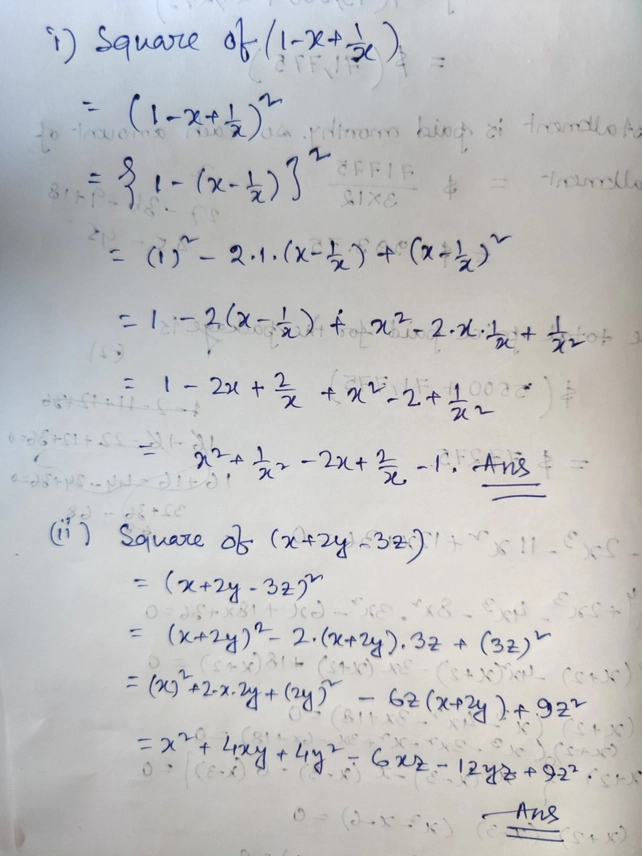 i) Square of (1-x+1/x)
= (1-x+1/x)²
= {1-(x-1/x)}²
= (1)² - 2.1.(x-1/x) + (x-1/x)²
= 1 - 2(x-1/x) + x² - 2.x.1/x + 1/x²
= 1 - 2x + 2/x + x² - 2 + 1/x²
= x² + 1/x² - 2x + 2/x - 1. Ans
(ii) Square of (x+2y-3z)
= (x+2y-3z)²
= (x+2y)² - 2.(x+2y).3z + (3z)²
= (x)² + 2.x.2y + (2y)² - 6z(x+2y) + 9z²
= x² + 4xy + 4y² - 6xz - 12yz + 9z².
Ans